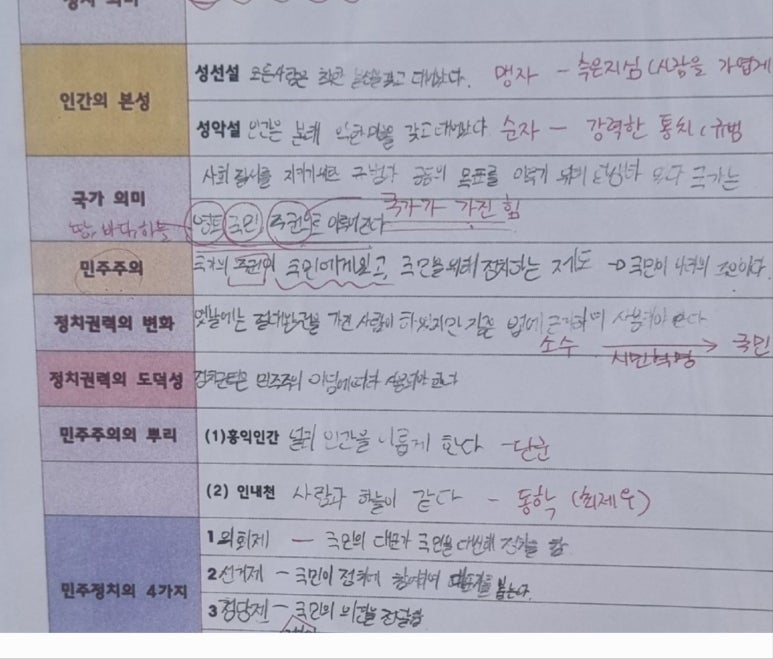 정치 의미
인간의 본성
성선설 모든사람은 착한 본성을 갖고 태어난다. 맹자 - 측은지심 (사람을 가엽게
성악설 인간은 본래 악한 마음을 갖고 태어난다. 순자 - 강력한 통치, 규범
국가 의미
사회 질서를 지키기 위해 규범과 공동의 목표를 이루기 위해 국가는
땅, 바다, 하늘 영토 국민 주권으로 이루어진다 국가가 가진 힘
민주주의
국가의 주권이 국민에게 있고, 국민을 위해 정치하는 제도 → 국민이 나라의 주인이다.
정치권력의 변화
옛날에는 절대왕권을 가진 사람이 지금은 법에 근거하여 사용해야 한다
소수 시민혁명 → 국민
정치권력의 도덕성
정치권력은 민주주의 이념에 따라
민주주의의 뿌리
(1)홍익인간 널리 인간을 이롭게 한다 - 단군
(2) 인내천 사람과 하늘이 같다 - 동학 (최제우)
민주정치의 4가지
1 의회제 - 국민의 대표가 국민을 대신해 정치를 함
2 선거제 - 국민이 정치에 참여하여 대표자를 뽑는다.
3 정당제 - 국민의 의견을 전달함